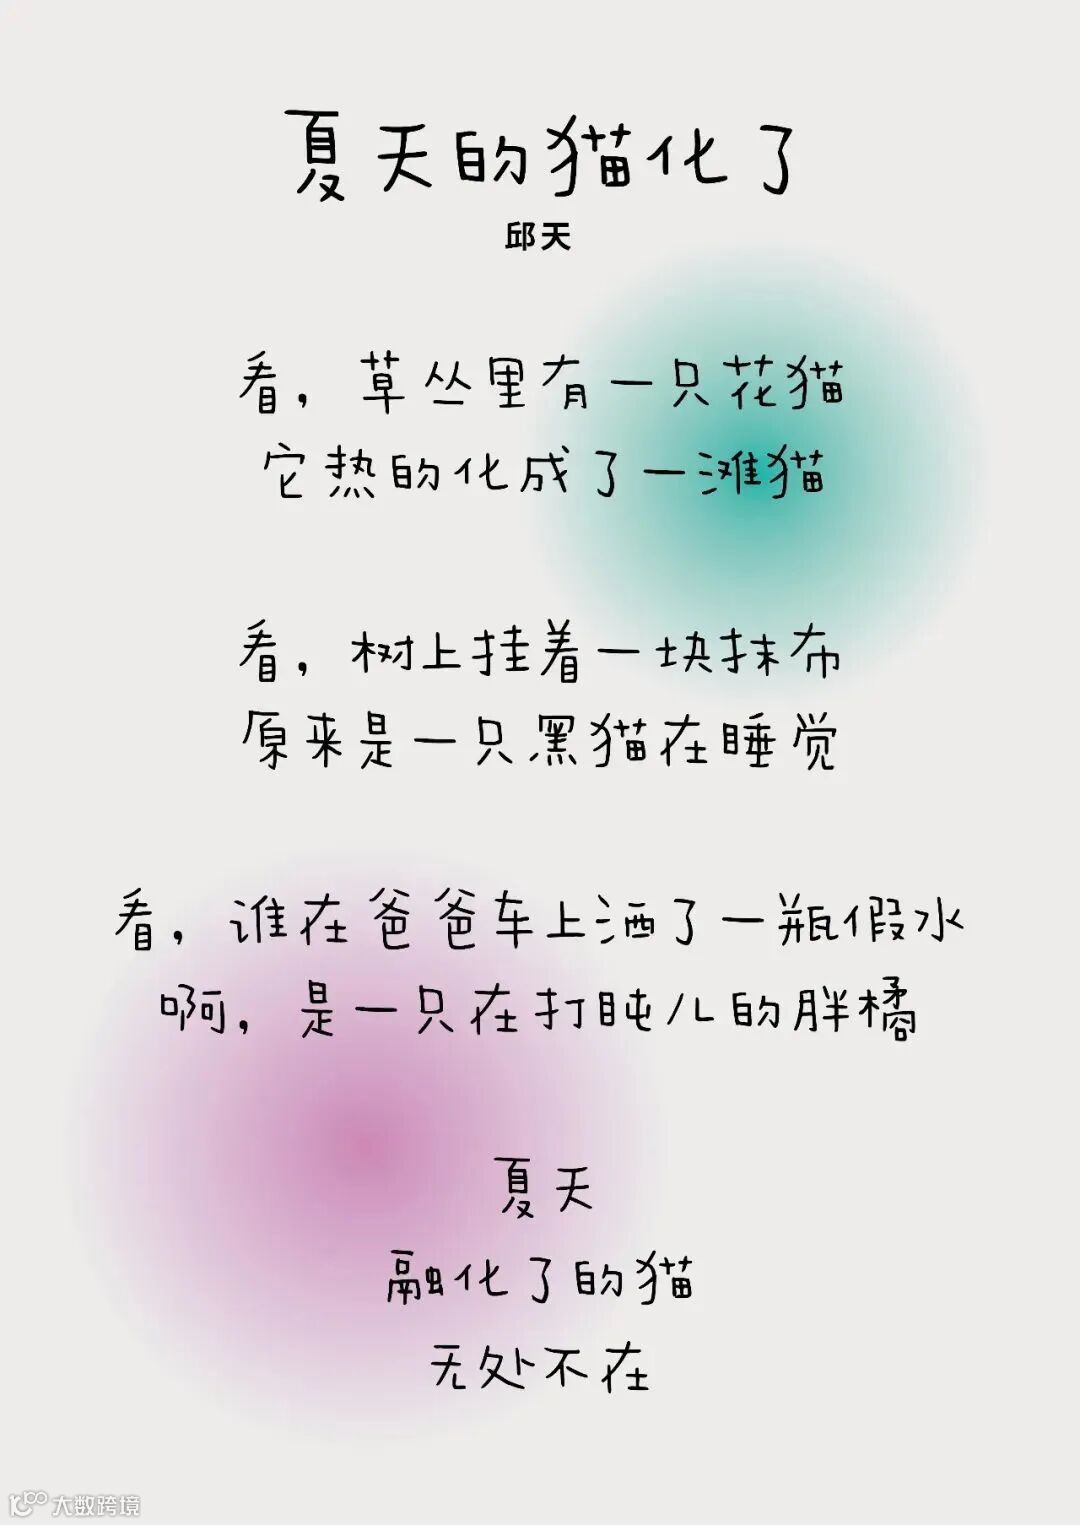 夏天的猫化了
邱天
看，草丛里有一只花猫
它热的化成了一滩猫
看，树上挂着一块抹布
原来是一只黑猫在睡觉
看，谁在爸爸车上洒了一瓶假水
啊，是一只在打盹儿的胖橘
夏天
融化了的猫
无处不在
大数跨境